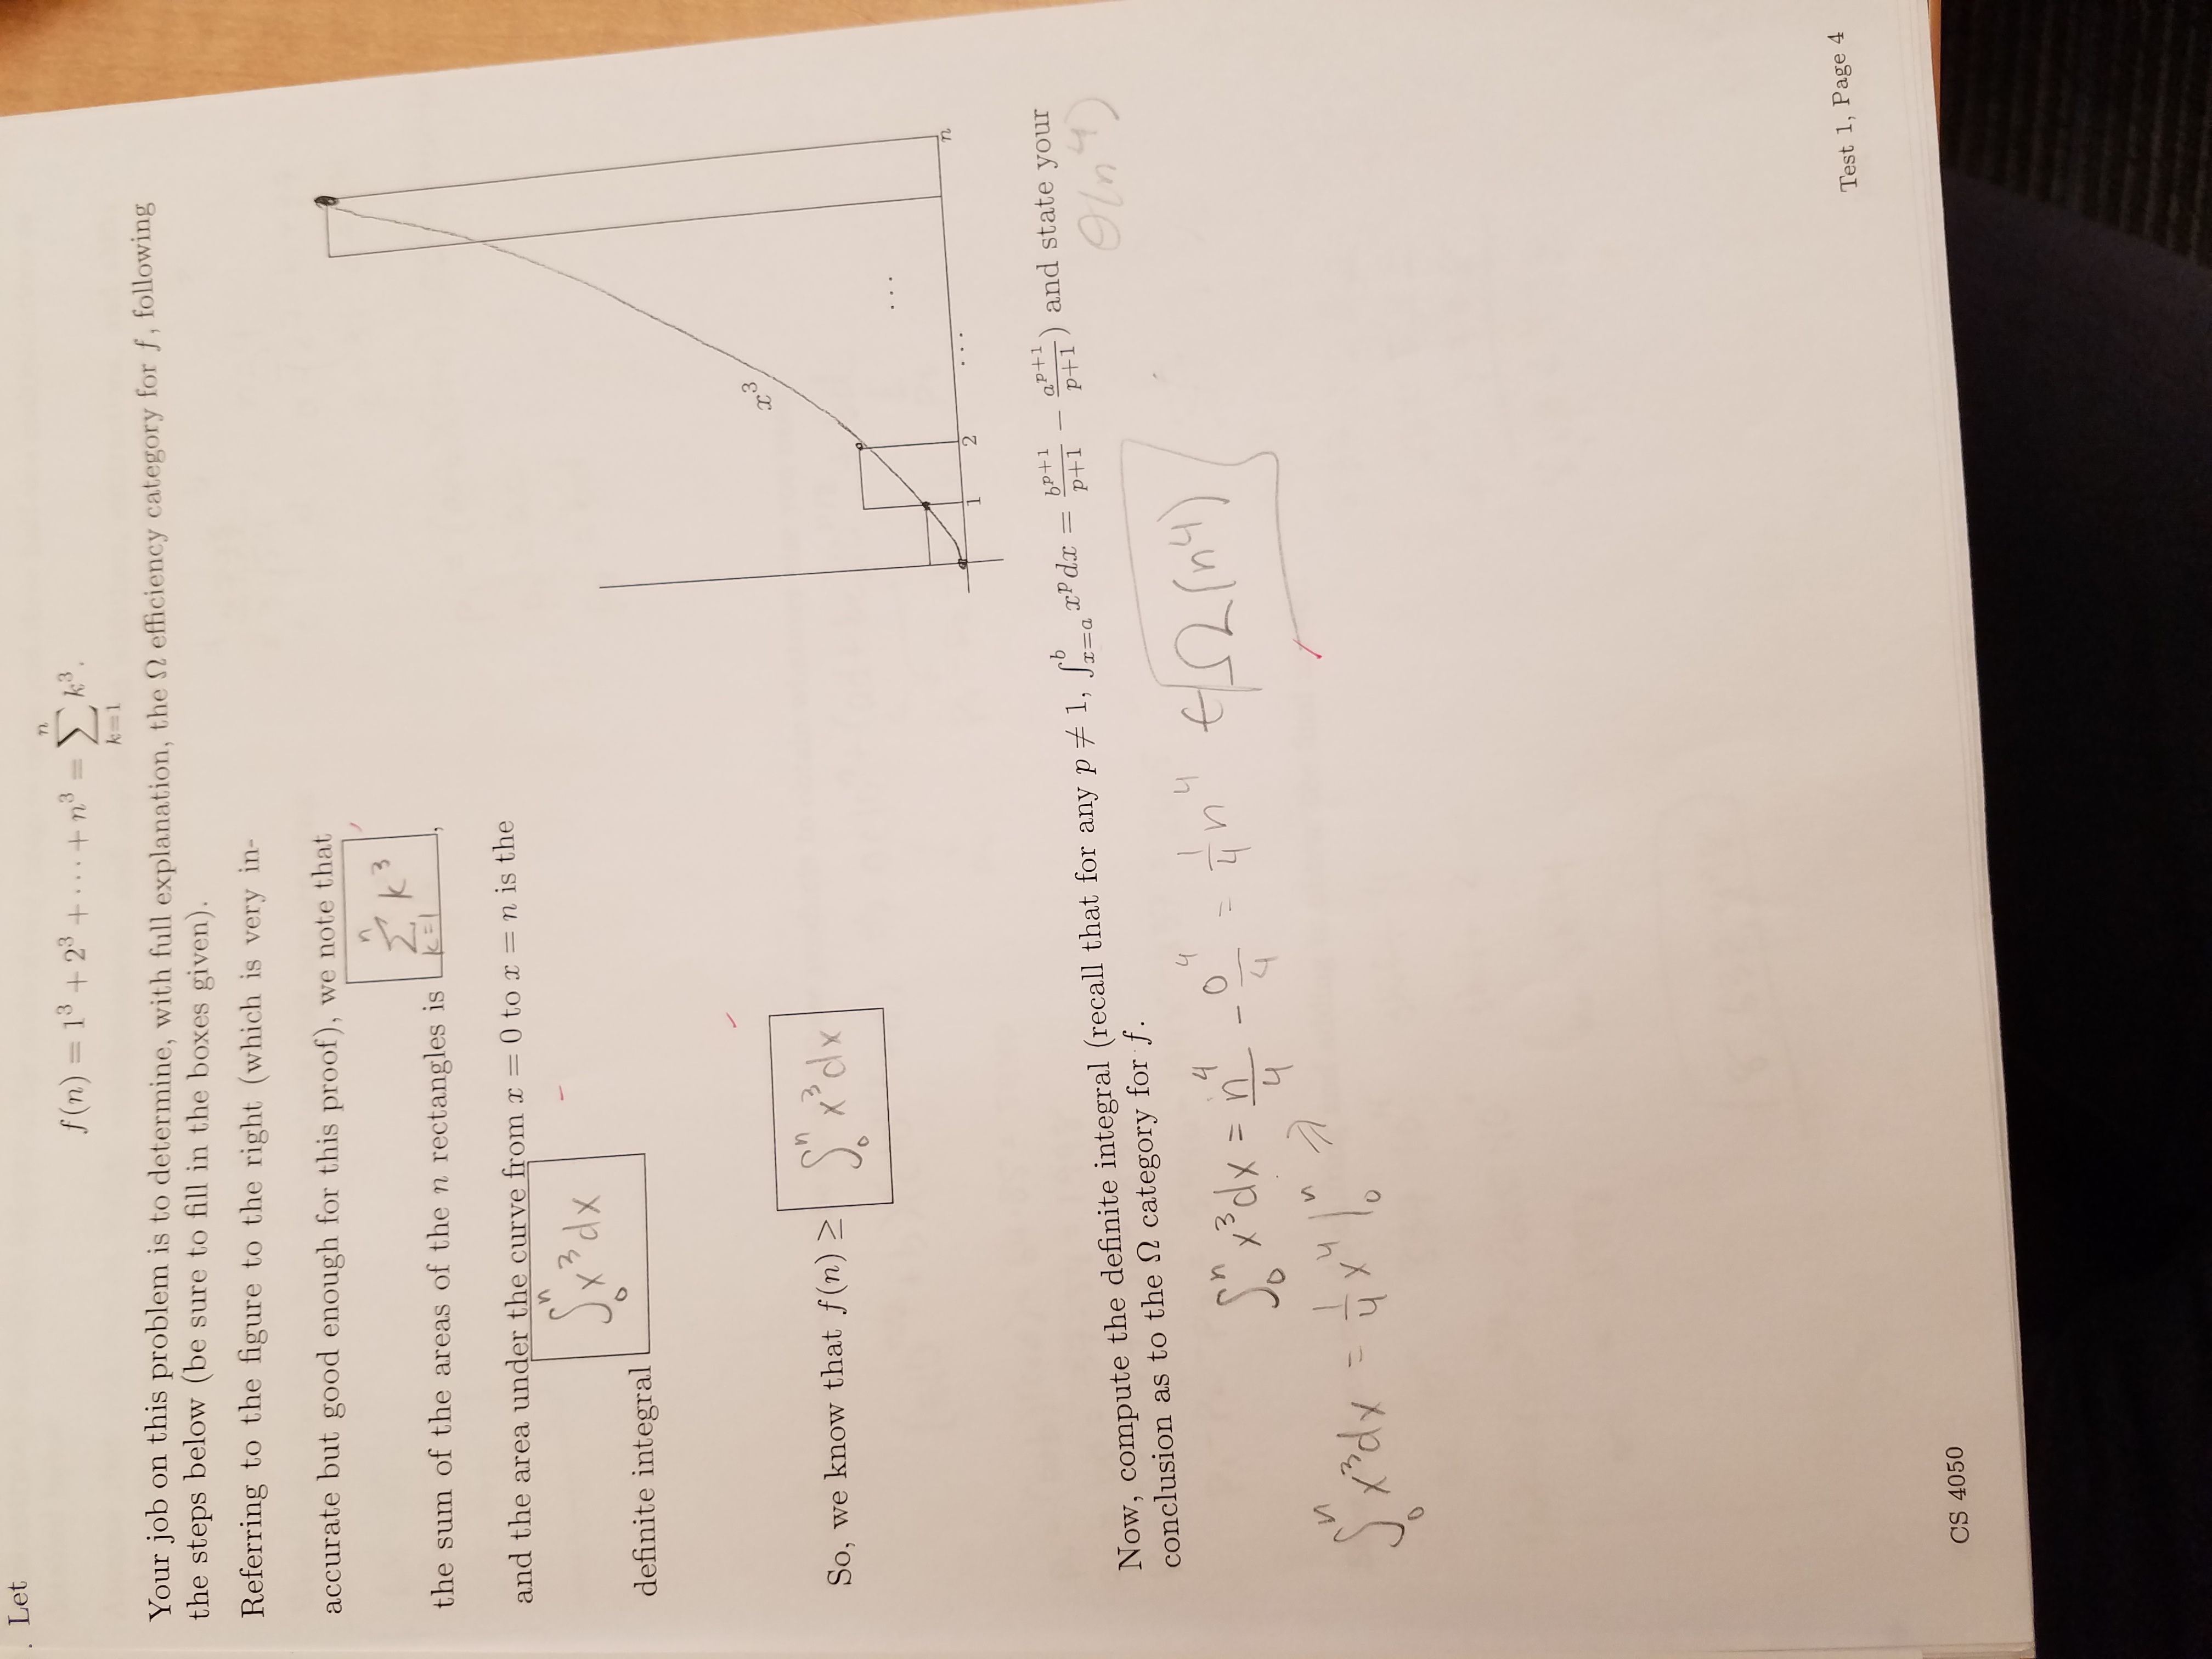 . Let
f(n) = 1³ + 2³ + · · · + n³ = ∑_{k=1}^{n} k³.
Your job on this problem is to determine, with full explanation, the Ω efficiency category for f, following
the steps below (be sure to fill in the boxes given).
Referring to the figure to the right (which is very in-
accurate but good enough for this proof), we note that
the sum of the areas of the n rectangles is ∑_{k=1}^{n} k³,
and the area under the curve from x = 0 to x = n is the
definite integral ∫₀ⁿ x³dx
So, we know that f(n) ≥ ∫₀ⁿ x³dx
x³
· · ·
1 2 · · · n
Now, compute the definite integral (recall that for any p ≠ 1, ∫_{x=a}^{b} x^p dx = b^{p+1}/(p+1) − a^{p+1}/(p+1)) and state your
conclusion as to the Ω category for f.
Θ(n⁴)
∫₀ⁿ x³dx = n⁴/4 − 0⁴/4 = 1/4 n⁴ ∈ Ω(n⁴)
∫₀ⁿ x³dx = 1/4 x⁴ |₀ⁿ ⇒
Test 1, Page 4
CS 4050